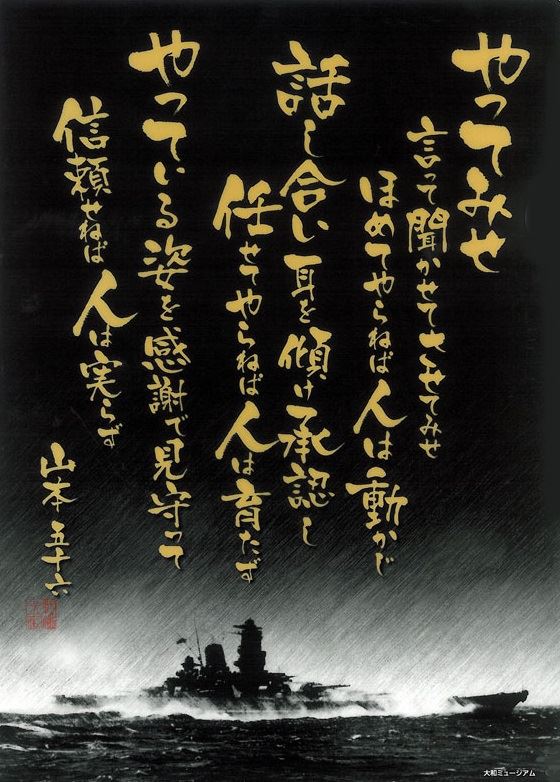 やってみせ
言って聞かせてさせてみせ
ほめてやらねば人は動かじ
話し合い耳を傾け承認し
任せてやらねば人は育たず
やっている姿を感謝で見守って
信頼せねば人は実らず
山本五十六
大和ミュージアム